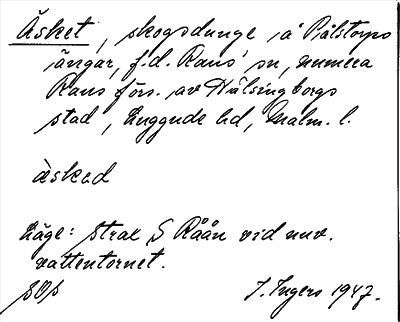 Äsket, skogsdunge i å Pålstorps
ängar, f.d. Raus' sn, numera
Raus förs. av Hälsingborgs
stad, Luggude hd, Malm. l.
äsked
Läge: strax S Råån vid nuv.
vattentornet.
I. Ingers 1947.